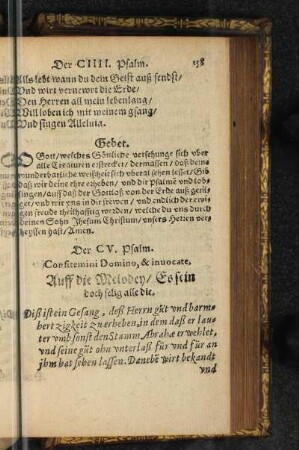 Der CIIII. Psalm. 158
Alls lebt wann du dein Geist auß sendst/
Vnd wirt vernewrt die Erde/
Den Herren all mein lebenlang/
Will loben ich mit meinem gsang/
Vnd singen Alleluia.
Gebet.
O Gott/ welches Göttliche versehung sich vber
alle Creaturen erstrecket/ dermassen/ daß deine
wunderbarliche weißheit sich vberal sehen lesset/ Gib
das wir deine ehre erheben/ vnd dir Psalme vnd lob-
singen/ auff daß der Gottloß von der Erde auß gerif-
vnd wir vns in dir frewen/ vnd endlich der ewi-
gen freude theilhafftig werden/ welche du vns durch
deinen Sohn Jhesum Christum/ vnsers Herrn ver-
heyssen hast/ Amen.
Der CV. Psalm.
Confitemini Domino, & inuocate.
Auff die Melodey/ Es sein
doch selig alle die.
Diß ist ein Gesang, deß Herrn güt vnd barm-
hertzigkeit zu erheben, in dem daß er lau-
ter vmb sonst den Stamm Abrahæ erwehlet,
vnd seine güt ohn vnterlaß für vnd für an
jhm hat sehen lassen. Danebē wirt bekandt
vnd